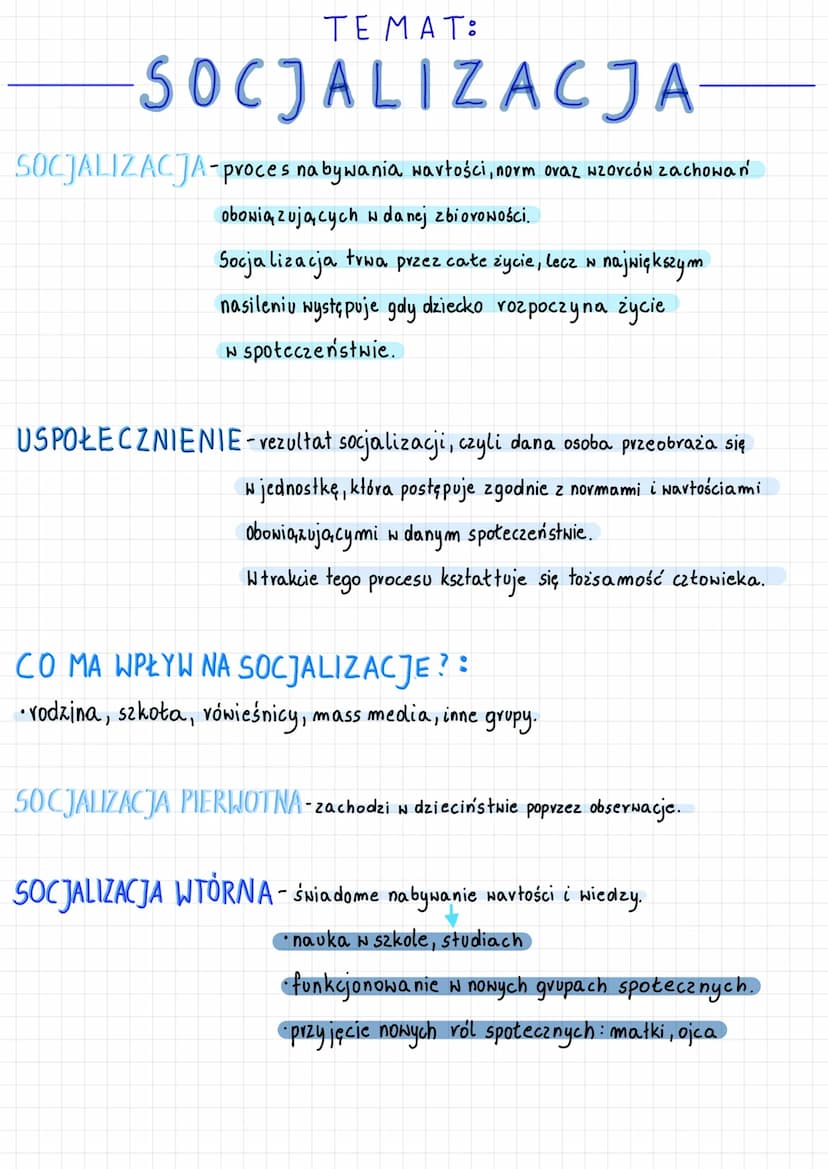 TEMAT:
SOCJALIZACJA
SOCJALIZACJA - proces nabywania wartości, norm oraz wzorców zachowań
obowiązujących w danej zbiorowości.
Socjalizacja trwa przez całe życie, lecz w największym
nasileniu występuje gdy dziecko rozpoczyna życie
w społeczeństwie.
USPOŁECZNIENIE - rezultat socjalizacji, czyli dana osoba przeobraża się
w jednostkę, która postępuje zgodnie z normami i wartościami
obowiązującymi w danym społeczeństwie.
W trakcie tego procesu kształtuje się tożsamość człowieka.
CO MA WPŁYW NA SOCJALIZACJE?:
• rodzina, szkoła, rówieśnicy, mass media, inne grupy.
SOCJALIZACJA PIERWOTNA - zachodzi w dzieciństwie poprzez obserwacje.
SOCJALIZACJA WTÓRNA - świadome nabywanie wartości i wiedzy.
• nauka w szkole, studiach
• funkcjonowanie w nowych grupach społecznych.
• przyjęcie nowych ról społecznych: matki, ojca